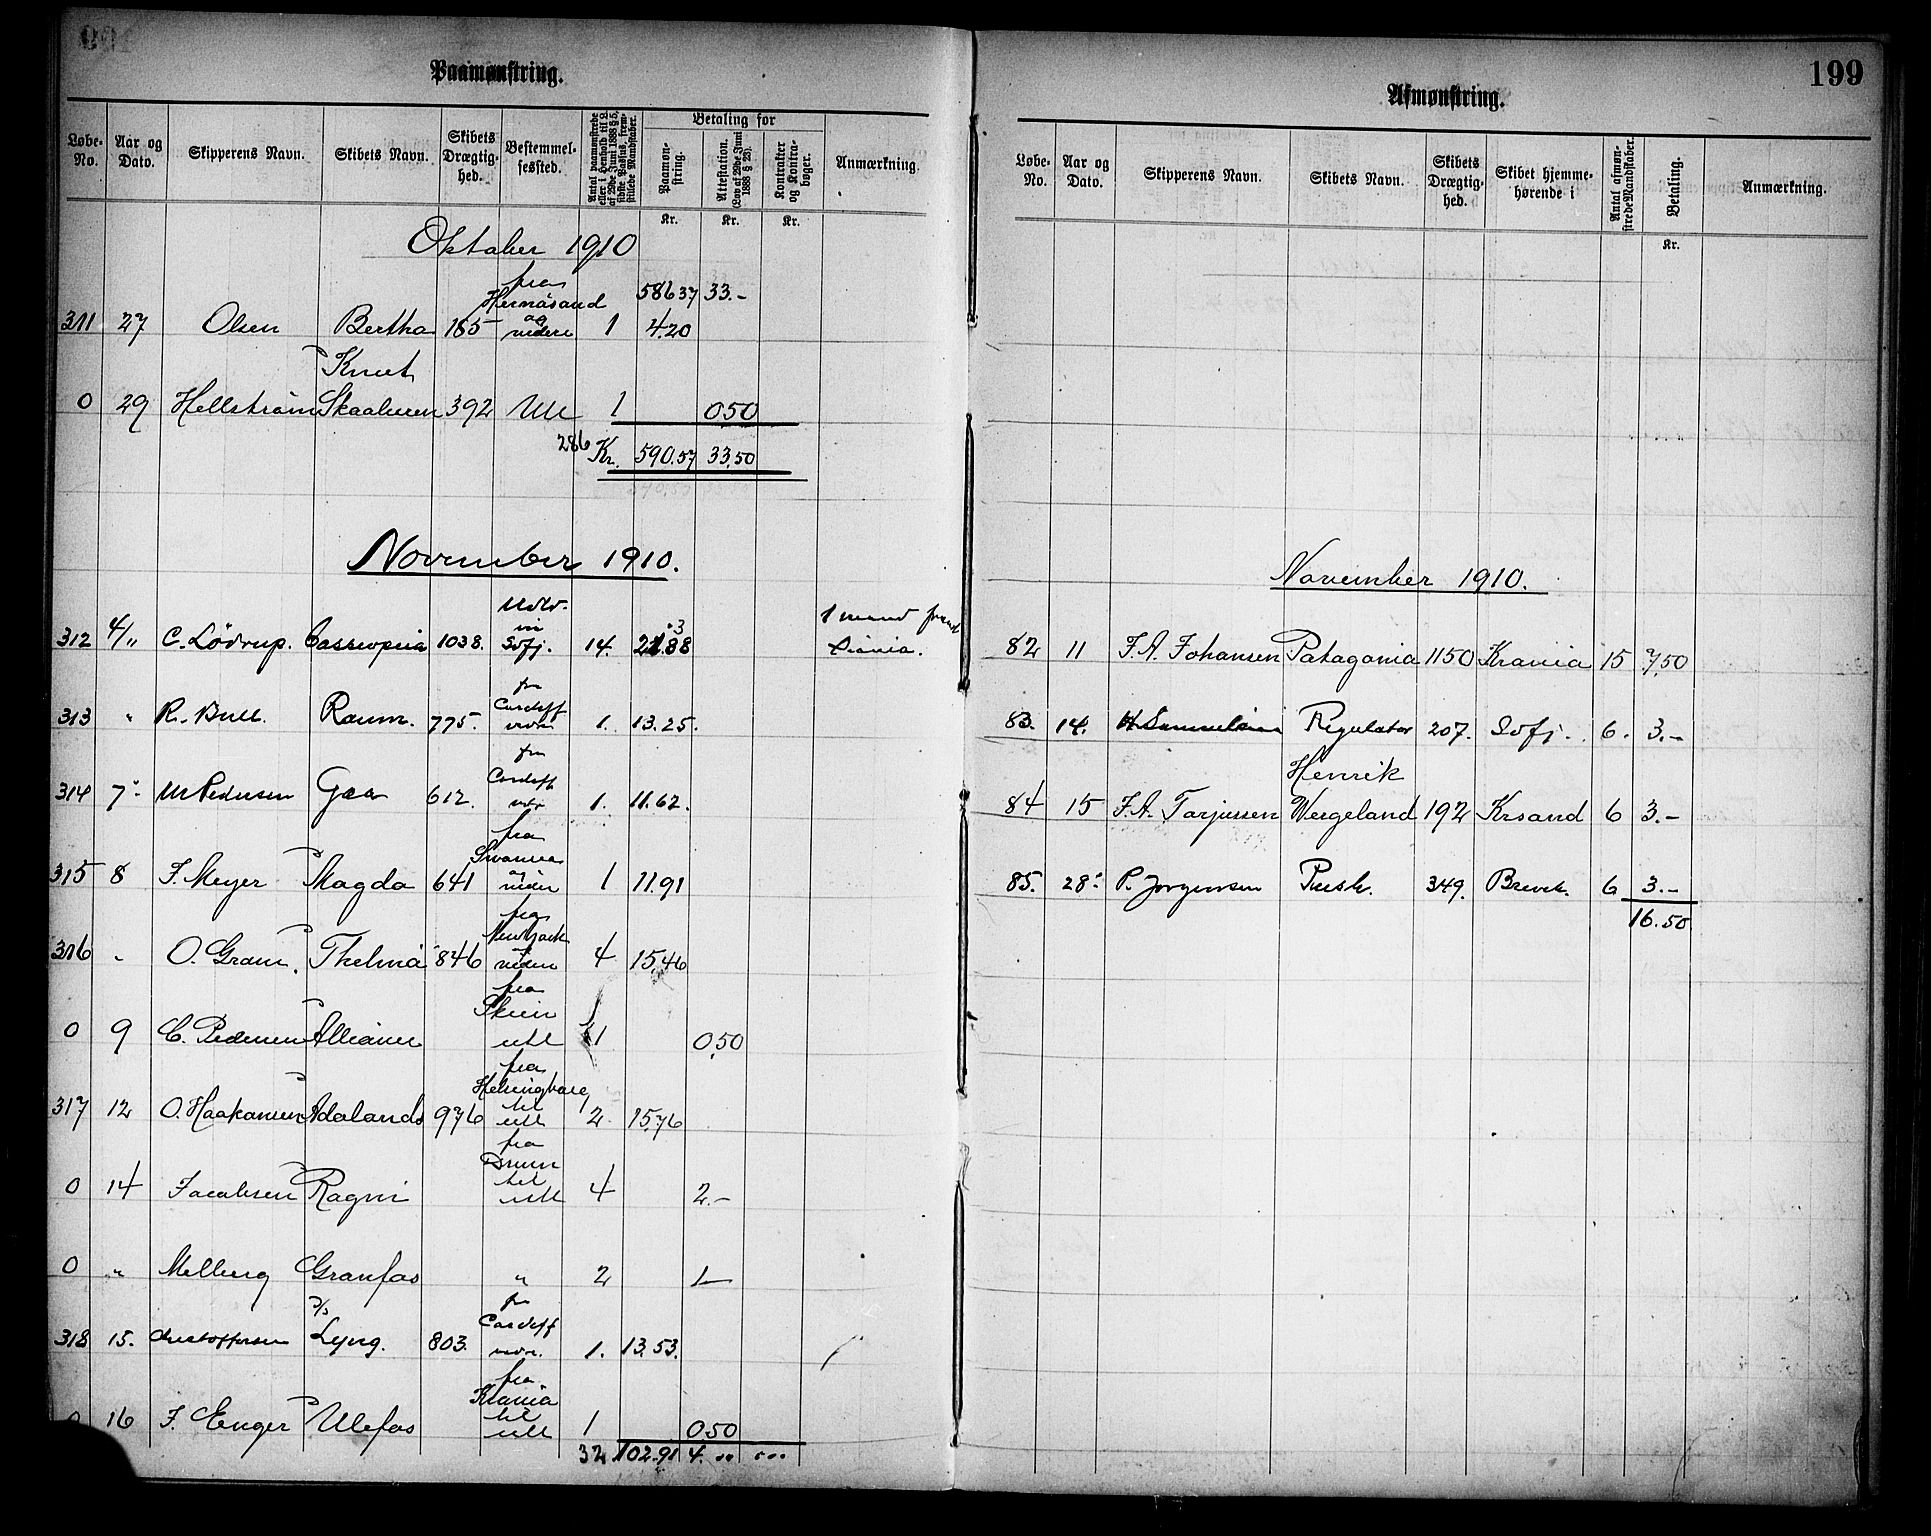 Paamønstring.
Løbe-No. | Aar og Dato. | Skipperens Navn. | Skibets Navn. | Skibets Drægtig-hed. | Bestemmel-sessted. | Antal paamønstrede eller i Henhold til L. af 29de Juni 1888 § 5, sidste Passus, frem-stillede Mandskaber. | Betaling for | Paamøn-string. | Attestation. (Lov af 29de Juni 1888 § 23). | Kontrakter og Kontra-bøger. | Anmærkning.
Kr. | Kr. | Kr.
Oktober 1910
586 37 | 33.-
311 | 27 | Olsen | Bertha | 165 | fra Hernösand og videre | 1 | 4.20
0 | 29 | Hellstrøm | Knut Skaaluren | 392 | Ull | 1 | 0.50
286 Kr. 590.57 33.50
November 1910.
312 | 4/11 | C. Lödrup. | Cassiopeia | 1038. | Sdfj. | 14. | 1 mand
313 | " | R. Bull | Raum. | 775. | fra Cardiff vidr | 1. | 13.25.
314 | 7 | M Pedersen | Gaa | 612. | fra Cardiff vidr | 1. | 11.62.
315 | 8 | J. Meyer | Magda | 641 | fra Swansea og videre | 1 | 11.91
316 | " | O. Gram. | Thelma | 846 | fra New York og videre | 4 | 15.46
0 | 9 | C. Pedersen | Alliance | fra Skien utl | 1 | 0.50
317 | 12 | O. Haakansen | Adalands | 976 | fra Helsingborg til utl | 2 | 15.76
0 | 14 | Jacobsen | Ragni | fra til utl | 4 | 2.-
0 | " | Melberg | Granfos | " | 2 | 1.-
318 | 15. | Christoffersen | D/s Lyng. | 803. | fra Cardiff vidr. | 1. | 13.53.
0 | 16 | J. Enger | Ulefos | fra Krania til utl | 1 | 0.50
32 102.91 4. " "
199
Afmønstring.
Løbe-No. | Aar og Dato. | Skipperens Navn. | Skibets Navn. | Skibets Drægtig-hed. | Skibet hjemme-hørende i | Antal afmøn-strede Mandskaber. | Betaling. | Anmærkning.
Kr.
November 1910.
82 | 11 | F. A. Johansen | Patagonia | 1150 | Krania | 15 | 7.50
83. | 14. | H Samuelsen | Regulator | 207. | Sdfj. | 6. | 3.-
84 | 15 | F. A. Tarjussen | Henrik Wergeland | 192 | Krsand | 6 | 3.-
85. | 28. | P. Jorgensen | Pusk. | 349. | Brevik. | 6 | 3.-
16.50